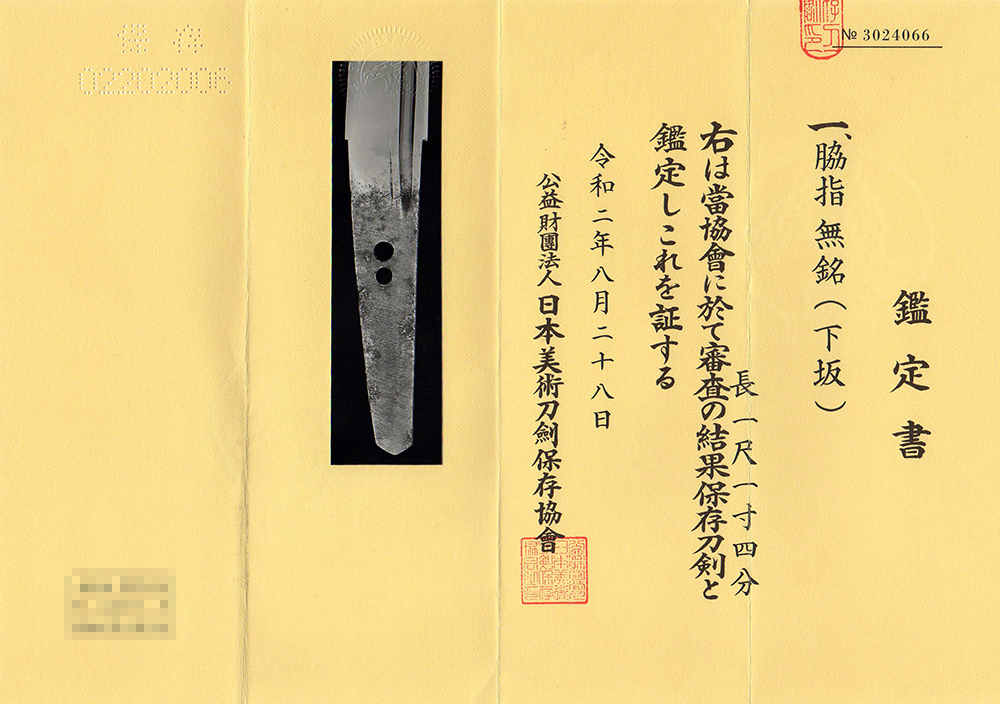 № 3024066
鑑定書
一、脇指 無銘(下坂)
長 一尺一寸四分
右は當協會に於て審査の結果保存刀剣と
鑑定しこれを証する
令和二年八月二十八日
公益財團法人 日本美術刀劍保存協會
保存
02202006